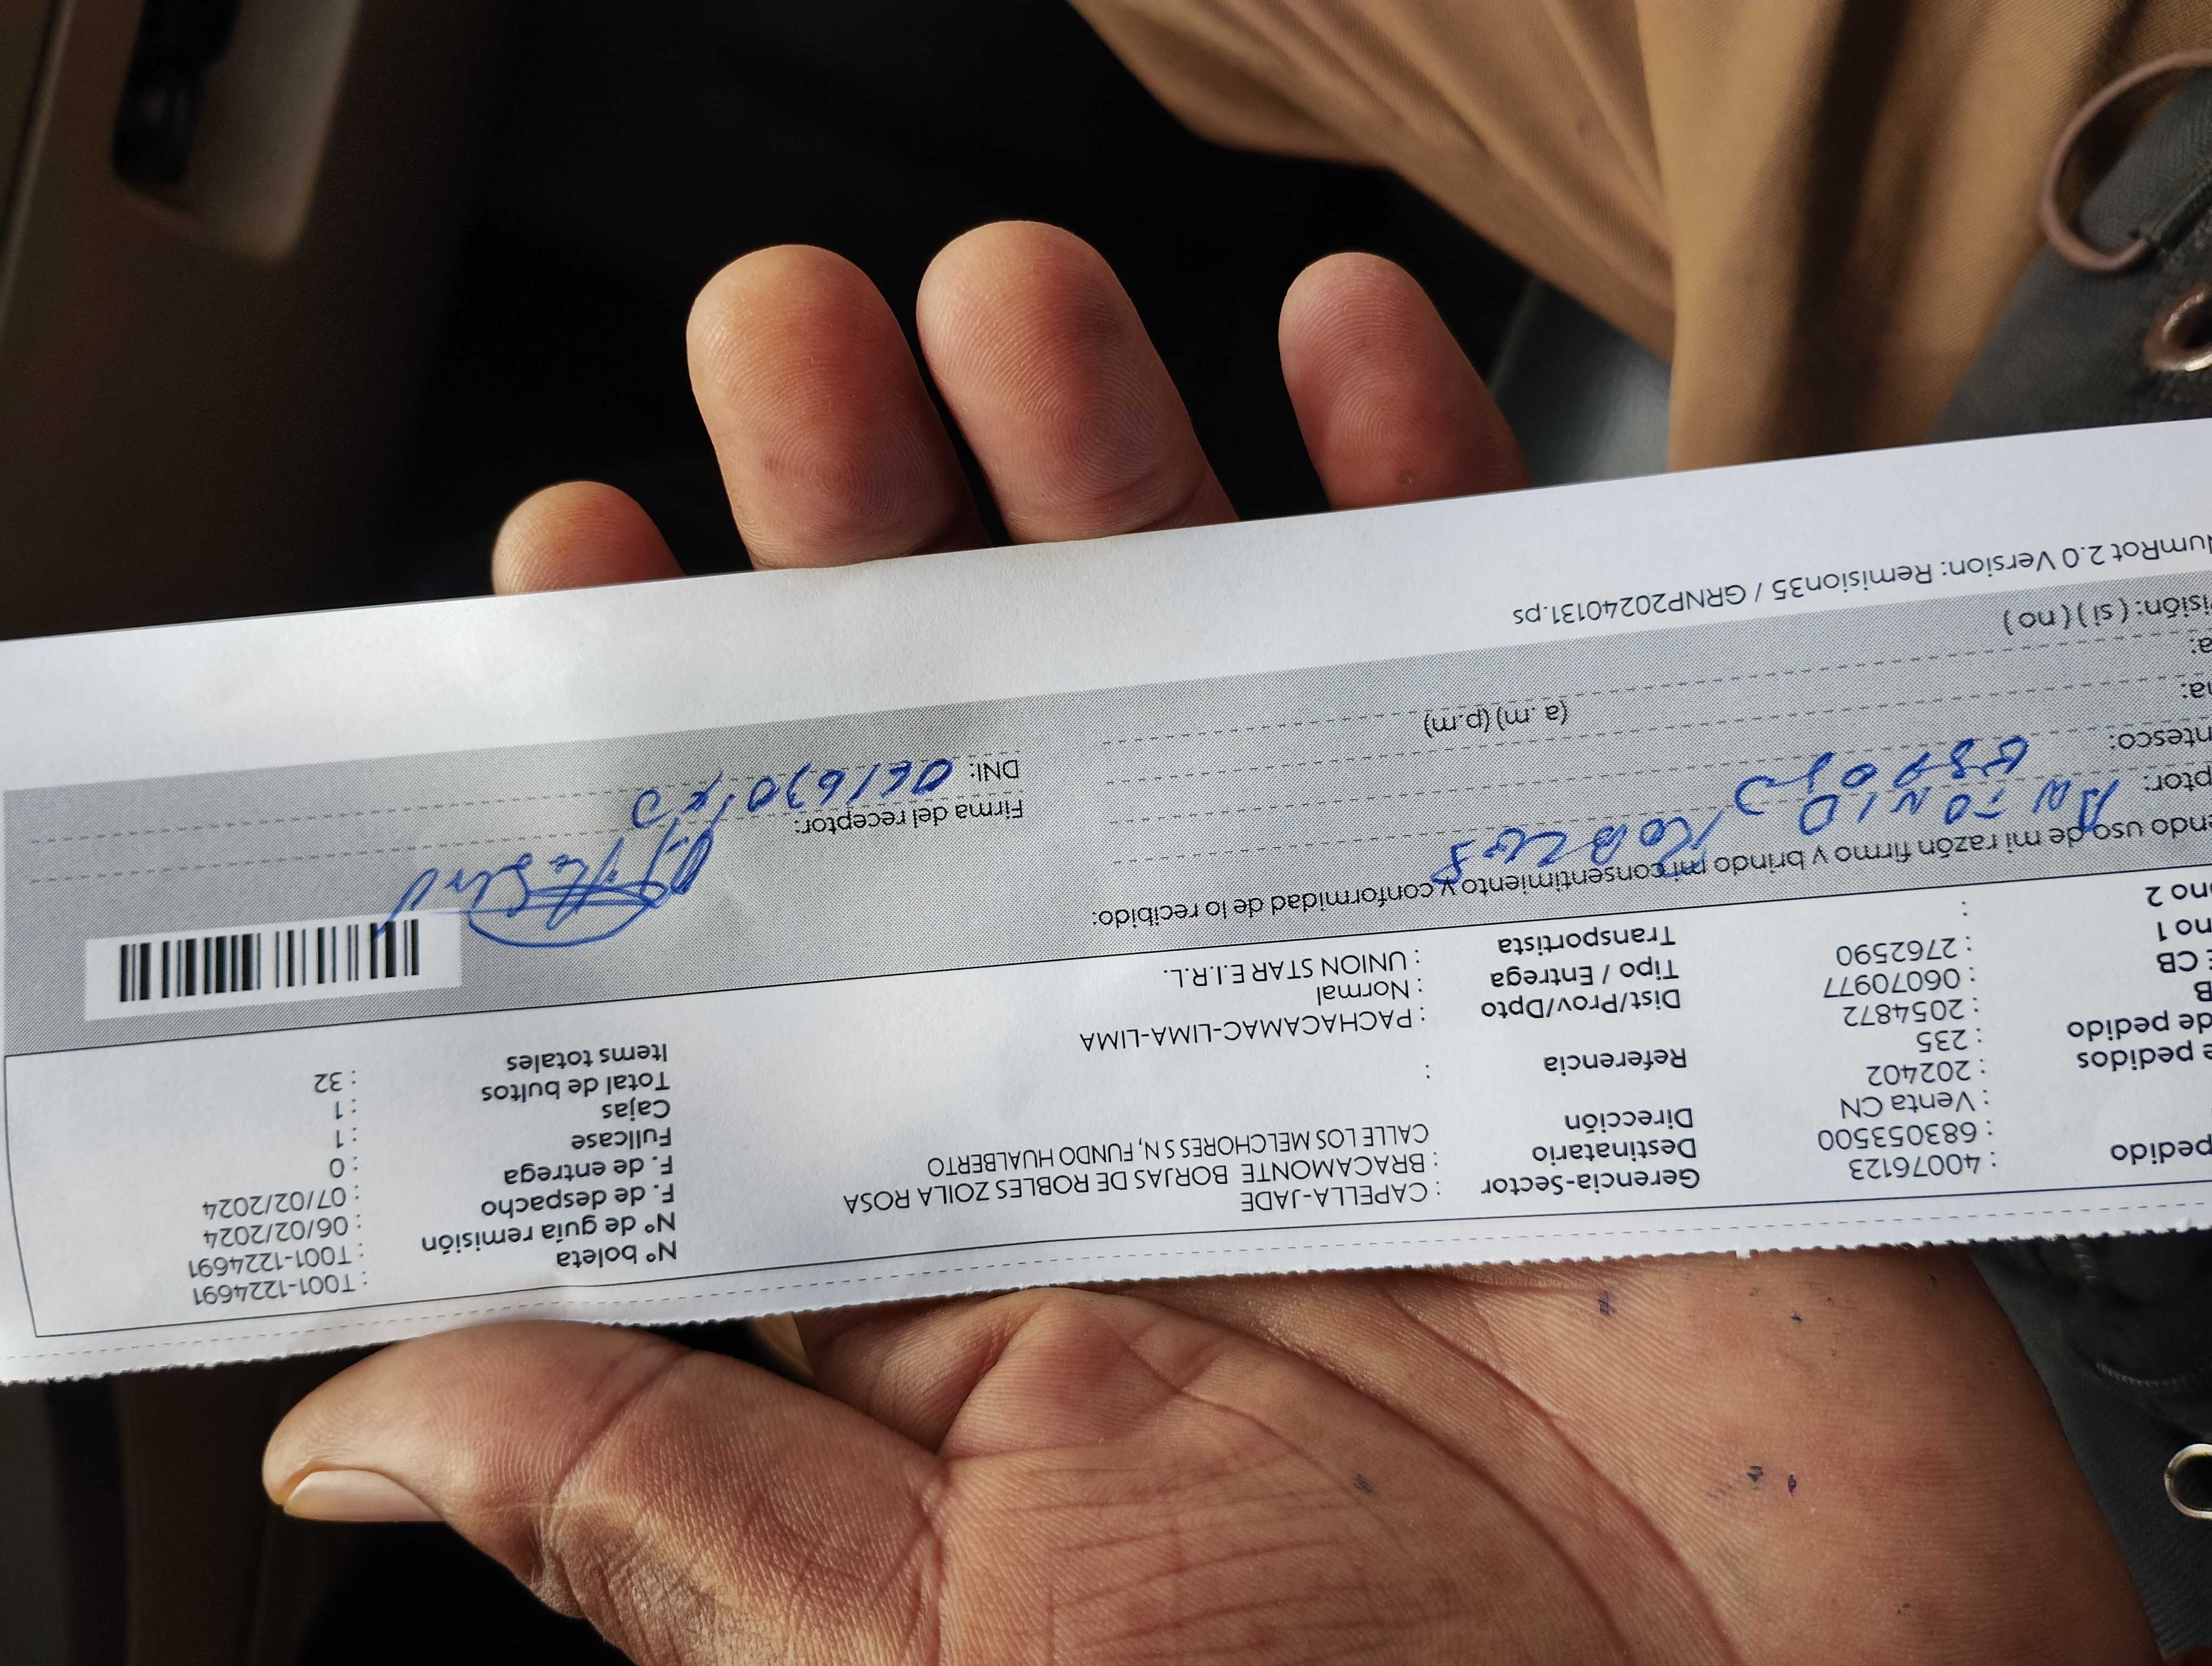 pedido : 40076123 Gerencia-Sector : CAPELLA-JADE Nº boleta : T001-1224691
: 683053500 Destinatario : BRACAMONTE BORJAS DE ROBLES ZOILA ROSA Nº de guía remisión : T001-1224691
: Venta CN Dirección CALLE LOS MELCHORES S N, FUNDO HUALBERTO F. de despacho : 06/02/2024
pedidos : 202402 F. de entrega : 07/02/2024
de pedido : 235 Referencia : Fullcase : 0
B : 2054872 Cajas : 1
CB : 06070977 Dist/Prov/Dpto : PACHACAMAC-LIMA-LIMA Total de bultos : 1
no 1 : 2762590 Tipo / Entrega : Normal Items totales : 32
ono 2 : Transportista : UNION STAR E.I.R.L.
endo uso de mi razón firmo y brindo mi consentimiento y conformidad de lo recibido:
ptor: ANTONIO ROBLES Firma del receptor:
ntesco: ESPOSO DNI:
na: (a. m) (p.m)
a:
isión: ( si ) ( no )
umRot 2.0 Version: Remision35 / GRNP20240131.ps